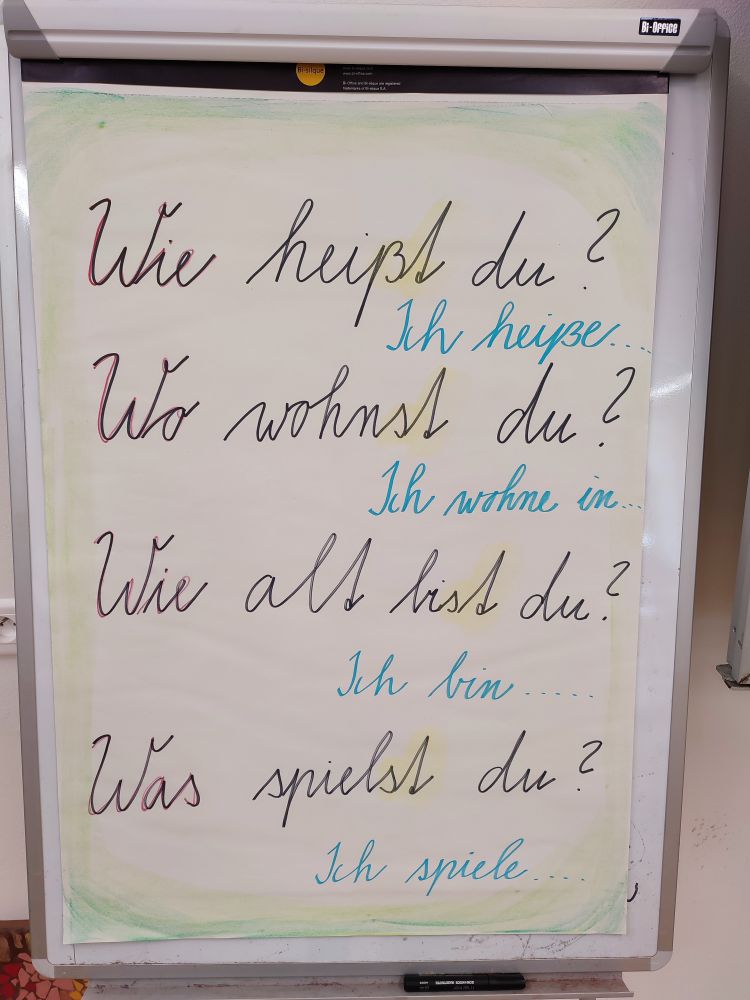 Bi-Office
Bi-silque
Wie heißt du?
Ich heiße....
Wo wohnst du?
Ich wohne in...
Wie alt bist du?
Ich bin.....
Was spielst du?
Ich spiele....